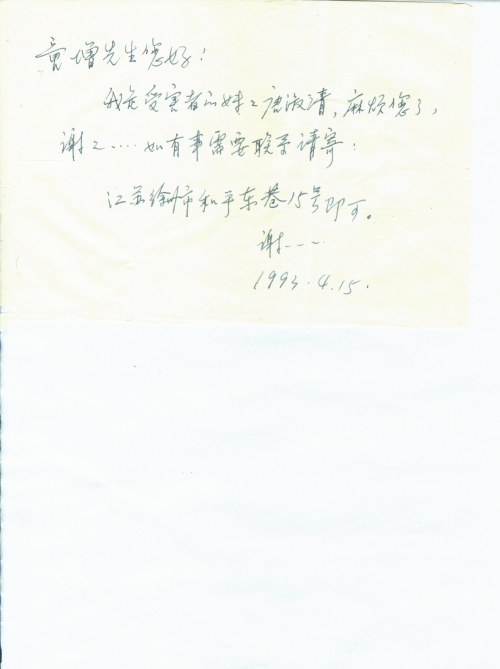 童增先生您好！
我是受害者的妹々唐淑清，麻烦您了，
谢々……如有事需要联系请寄：
江苏徐州市和平东巷15号即可。
谢———
1993.4.15.